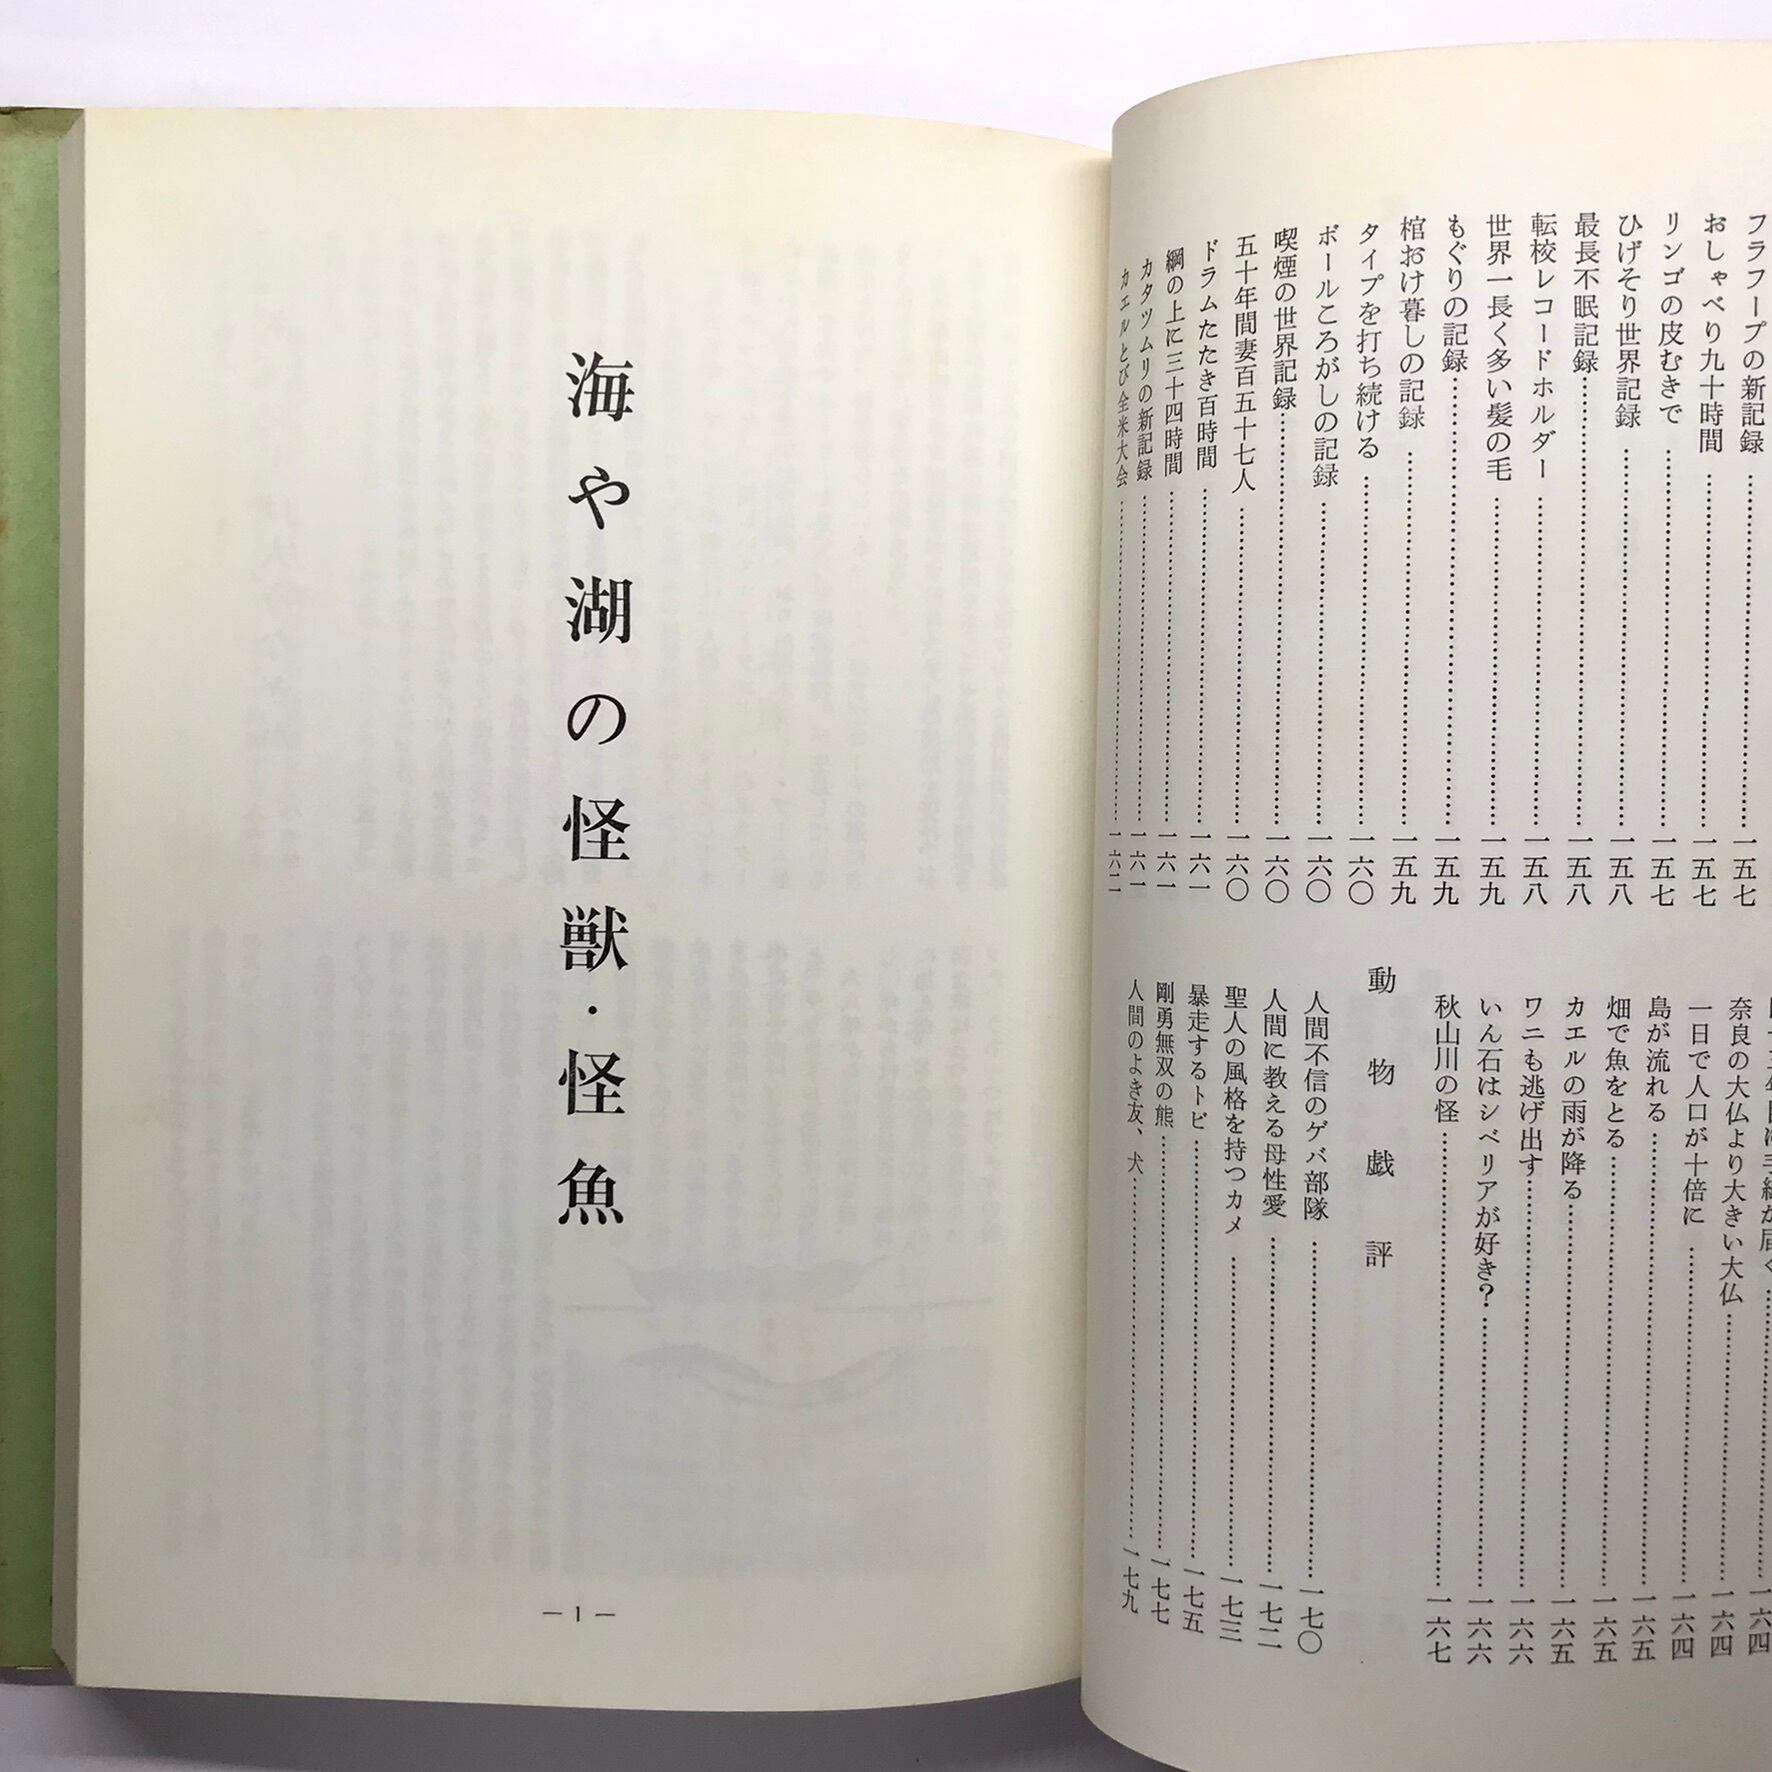 フラフープの新記録……一五七
おしゃべり九十時間……一五七
リンゴの皮むきで……一五七
ひげそり世界記録……一五八
最長不眠記録……一五八
転校レコードホルダー……一五八
世界一長く多い髪の毛……一五九
もぐりの記録……一五九
棺おけ暮しの記録……一五九
タイプを打ち続ける……一六〇
ボールころがしの記録……一六〇
喫煙の世界記録……一六〇
五十年間妻百五十七人……一六〇
ドラムたたき百時間……一六一
綱の上に三十四時間……一六一
カタツムリの新記録……一六一
カエルとび全米大会……一六二
奈良の大仏より大きい大仏……一六四
一日で人口が十倍に……一六四
島が流れる……一六五
畑で魚をとる……一六五
カエルの雨が降る……一六五
ワニも逃げ出す……一六六
いん石はシベリアが好き?……一六六
秋山川の怪……一六七
動物戯評
人間不信のゲバ部隊……一七〇
人間に教える母性愛……一七二
聖人の風格を持つカメ……一七三
暴走するトビ……一七五
剛勇無双の熊……一七七
人間のよき友、犬……一七九
海や湖の怪獣・怪魚
— 1 —